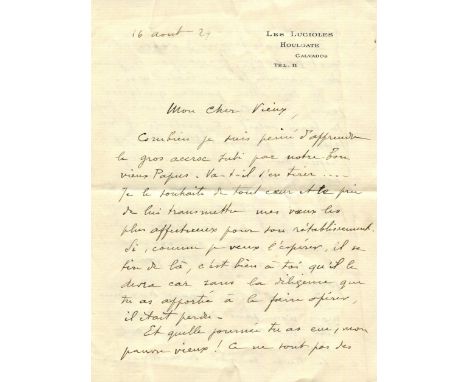 16 aout 29
LES LUCIOLES
HOULGATE
CALVADOS
TÉL. 11
Mon cher Vieux,
Combien je suis peiné d'apprendre
le gros accroc subi par notre bon
vieux Papus. Va-t-il s'en tirer ....
Je le souhaite de tout cœur et te prie
de lui transmettre mes vœux les
plus affectueux pour son rétablissement.
Si, comme je veux l'espérer, il se
tire de là, c'est bien à toi qu'il le
devra car sans la diligence que
tu as apportée à le faire opérer,
il était perdu.
Et quelle journée tu as eue, mon
pauvre vieux ! Ce ne sont pas des